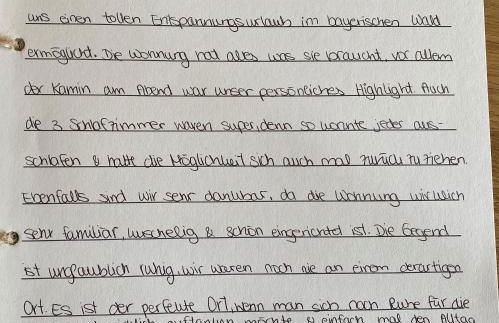 uns einen tollen Entspannungsurlaub im bayerischen Wald
ermöglicht. Die Wohnung hat alles was sie braucht, vor allem
der Kamin am Abend war unser persönliches Highlight. Auch
die 3 Schlafzimmer waren super, denn so konnte jeder aus-
schlafen & hatte die Möglichkeit sich auch mal zurück zu ziehen.
Ebenfalls sind wir sehr dankbar, da die Wohnung wirklich
sehr familiär, kuschelig & schön eingerichtet ist. Die Gegend
ist unglaublich ruhig, wir waren noch nie an einem derartigen
Ort. Es ist der perfekte Ort, wenn man sich nach Ruhe für die
auftanken möchte & einfach mal den Alltag